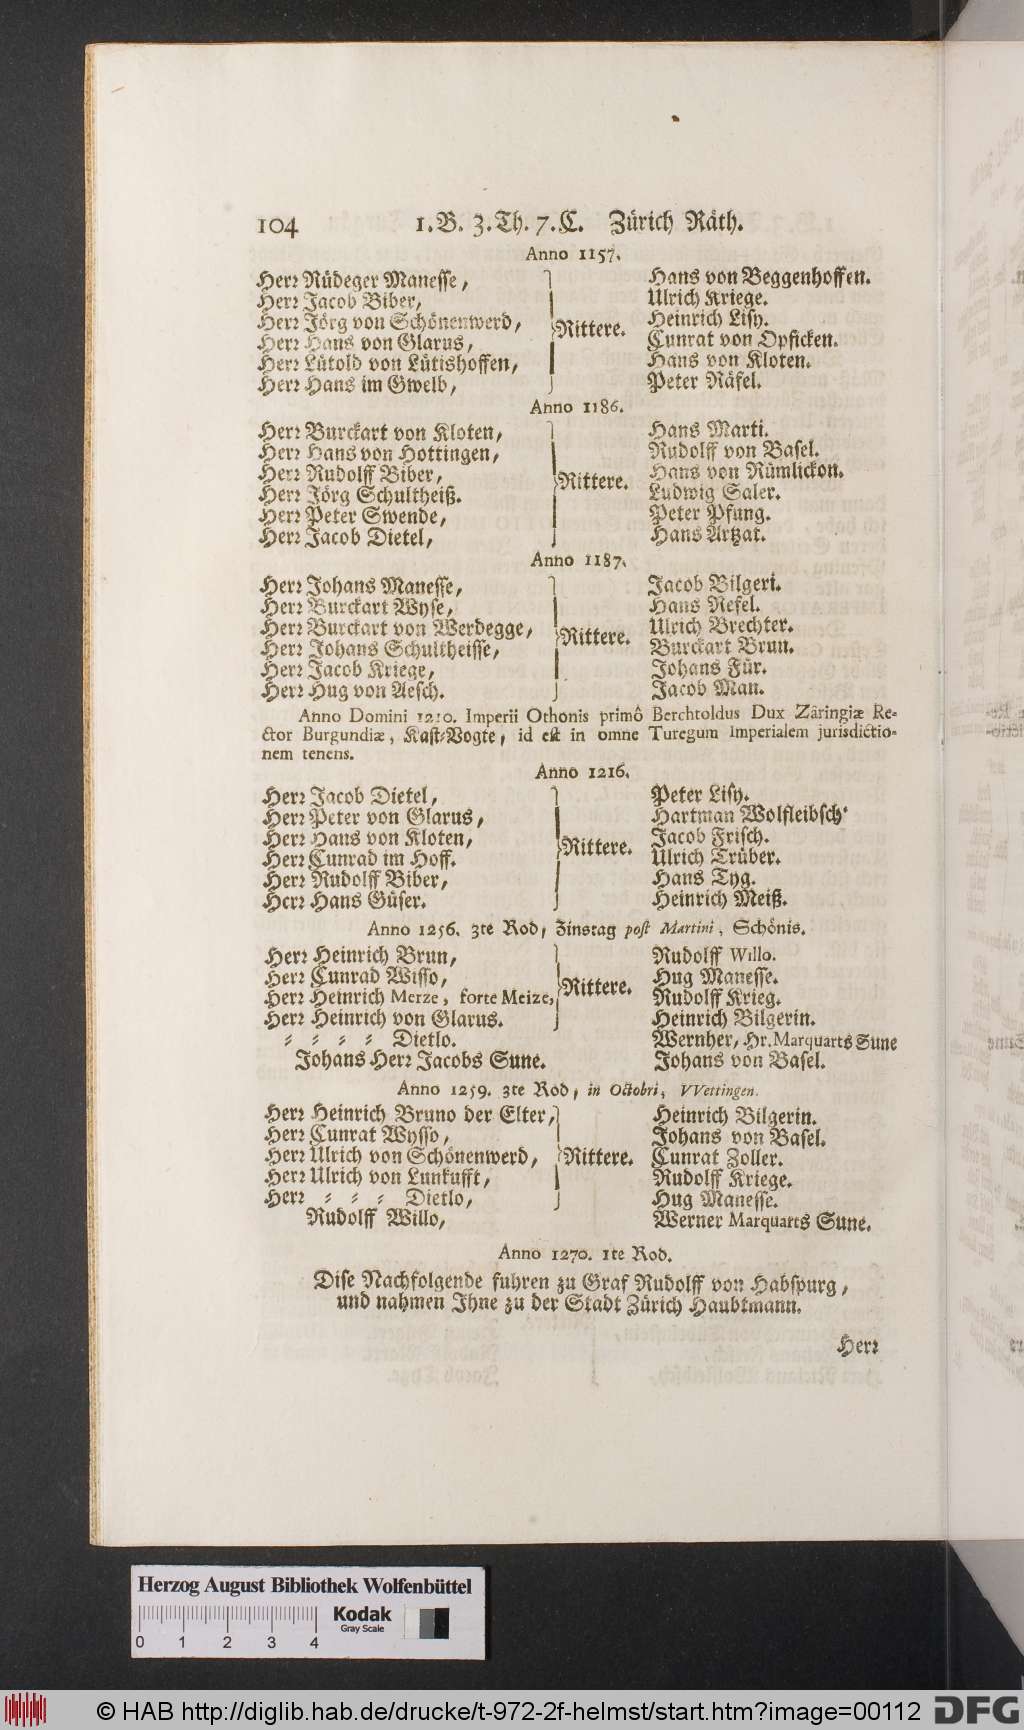 104 1. B. 3. Th. 7. C. Zürich Räth.
Anno 1157.
Herr Rüdeger Manesse,
Herr Jacob Biber,
Herr Jörg von Schönenwerd,
Herr Hans von Glarus,
Herr Lütold von Lütishoffen,
Herr Hans im Gwelb,
Rittere.
Hans von Beggenhoffen.
Ulrich Kriege.
Heinrich Lisy.
Cunrat von Opficken.
Hans von Kloten.
Peter Räfel.
Anno 1186.
Herr Burckart von Kloten,
Herr Hans von Hottingen,
Herr Rudolff Biber,
Herr Jörg Schultheiß.
Herr Peter Swende,
Herr Jacob Dietel,
Rittere.
Hans Marti.
Rudolff von Basel.
Hans von Rümlickon.
Ludwig Saler.
Peter Pfung.
Hans Artzat.
Anno 1187.
Herr Johans Manesse,
Herr Burckart Wyse,
Herr Burckart von Werdegge,
Herr Johans Schultheisse,
Herr Jacob Kriege,
Herr Hug von Aesch.
Rittere.
Jacob Bilgeri.
Hans Refel.
Ulrich Brechter.
Burckart Brun.
Johans Für.
Jacob Man.
Anno Domini 1210. Imperii Othonis primô Berchtoldus Dux Zäringiæ Re-
ctor Burgundiæ, Kast-Vogte, id est in omne Turegum Imperialem jurisdictio-
nem tenens.
Anno 1216.
Herr Jacob Dietel,
Herr Peter von Glarus,
Herr Hans von Kloten,
Herr Cunrad im Hoff.
Herr Rudolff Biber,
Herr Hans Güser.
Rittere.
Peter Lisy.
Hartman Wolfleibsch.
Jacob Frisch.
Ulrich Trüber.
Hans Tyg.
Heinrich Meiß.
Anno 1256. 3te Rod, Zinstag post Martini, Schönis.
Herr Heinrich Brun,
Herr Cunrad Wisso,
Herr Heinrich Merze, forte Meize,
Herr Heinrich von Glarus.
= = = = Dietlo.
Johans Herr Jacobs Sune.
Rittere.
Rudolff Willo.
Hug Manesse.
Rudolff Krieg.
Heinrich Bilgerin.
Wernher, Hr. Marquarts Sune
Johans von Basel.
Anno 1259. 3te Rod, in Octobri, VVettingen.
Herr Heinrich Bruno der Elter,
Herr Cunrat Wysso,
Herr Ulrich von Schönenwerd,
Herr Ulrich von Lunkufft,
Herr = = = Dietlo,
Rudolff Willo,
Rittere.
Heinrich Bilgerin.
Johans von Basel.
Cunrat Zoller.
Rudolff Kriege.
Hug Manesse.
Werner Marquarts Sune.
Anno 1270. 1te Rod.
Dise Nachfolgende fuhren zu Graf Rudolff von Habspurg,
und nahmen Ihne zu der Stadt Zürich Haubtmann.
Herr
Herzog August Bibliothek Wolfenbüttel
0 1 2 3 4
Kodak
Gray Scale
© HAB http://diglib.hab.de/drucke/t-972-2f-helmst/start.htm?image=00112
DFG